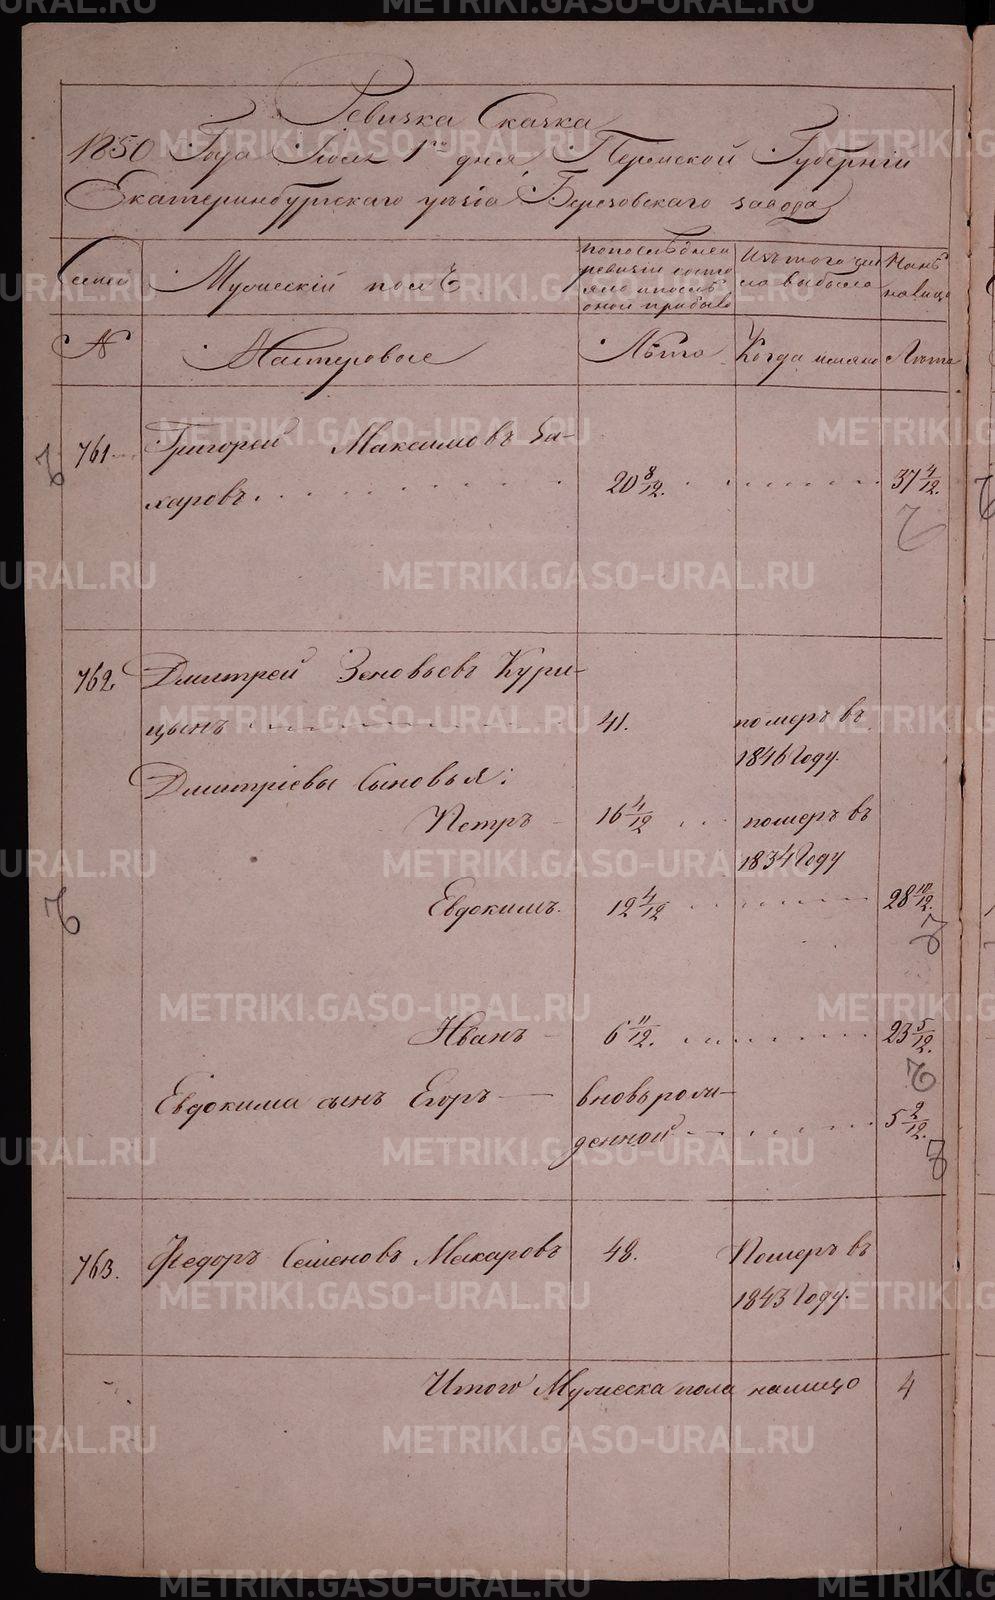 Ревизка Скачка
1850 Года Июля 1го дня, Пермской Губернiи
Екатеринбургскаго уѣзда Березовскаго завода
Семьи
Мужескiй полъ
По последней
ревизiи состо
яло и послѣ
оной прибыло
Изъ того чи
сла выбыло
Нынѣ
на лицо
№
Мастеровые
Лѣта
Когда имяно
Лѣта
761.
Григорей Максимовъ За-
харовъ.
20 8/12.
37 4/12.
762.
Дмитрей Зеновьевъ Кури-
цынъ
41.
померъ въ
1846 Году.
Дмитрiевы Сыновья:
Петръ
16 4/12
померъ въ
1834 Году
Евдокимъ.
12 4/12
28 10/12.
Иванъ
6 11/12.
23 5/12.
Евдокима сынъ Егоръ
вновь рож-
денной
5 2/12.
763.
Федоръ Семеновъ Макаровъ
48.
Померъ въ
1843 Году.
Итого Мужеска пола налицо
4
METRIKI.GASO-URAL.RU